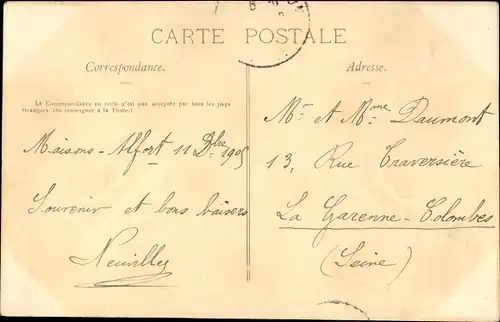 CARTE POSTALE
Correspondance.
La Correspondance au recto n'est pas acceptée par tous les pays
étrangers (se renseigner à la Poste.)
Maisons-Alfort 11 Dbre 1905
Souvenir et bons baisers
Neuilly
Adresse.
Mr et Mme Daumont
13, Rue Traversière
La Garenne-Colombes
(Seine)